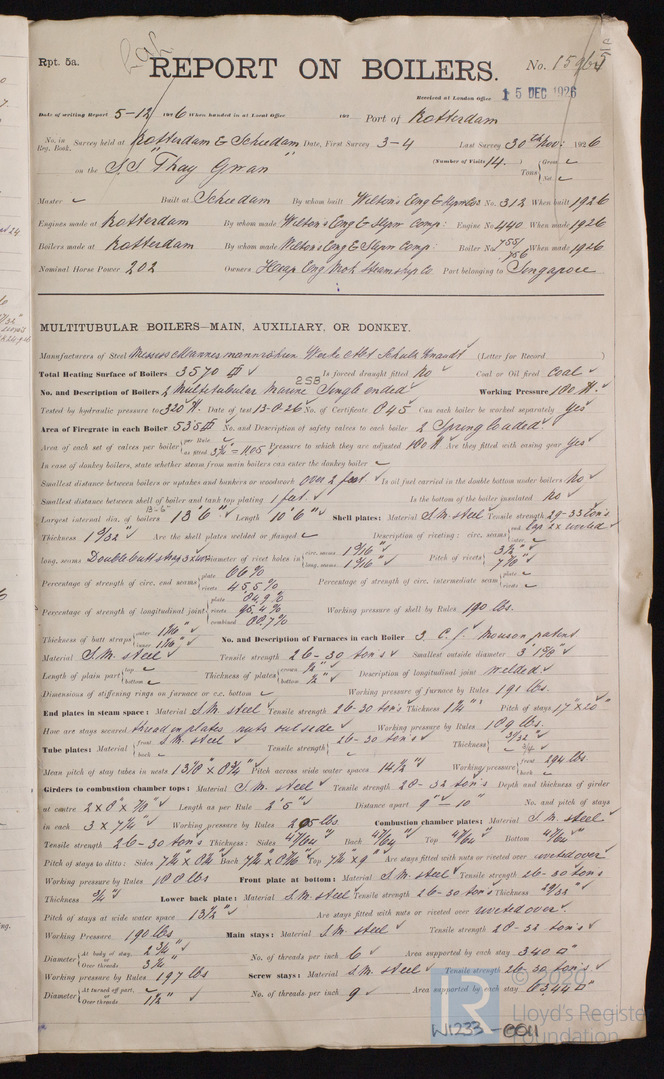 Rpt. 5a.
REPORT ON BOILERS.
No. 15964
Received at London Office 15 DEC 1926
Date of writing Report 5-12 1926 When handed in at Local Office 192 Port of Rotterdam
No. in Reg. Book. Survey held at Rotterdam & Schiedam Date, First Survey 3-4 Last Survey 30th Nov: 1926
on the S.S. "Thay Gwan" (Number of Visits 14.) Tons Gross Net
Master Built at Schiedam By whom built Wilton's Eng & Slipw Co No. 312 When built 1926
Engines made at Rotterdam By whom made Wilton's Eng & Slipw Comp: Engine No. 440 When made 1926
Boilers made at Rotterdam By whom made Wilton's Eng & Slipw Comp: Boiler No. 755/756 When made 1926
Nominal Horse Power 202 Owners Heap Eng Moh Steamship Co Port belonging to Singapore
MULTITUBULAR BOILERS—MAIN, AUXILIARY, OR DONKEY.
Manufacturers of Steel Messrs Mannesmannröhren Werke Abt Schulz Knaudt (Letter for Record )
Total Heating Surface of Boilers 3570 Is forced draught fitted No Coal or Oil fired Coal
No. and Description of Boilers 2 Multitubular Marine Single ended Working Pressure 180
Tested by hydraulic pressure to 320 Date of test 13-8-26 No. of Certificate 845 Can each boiler be worked separately Yes
Area of Firegrate in each Boiler No. and Description of safety valves to each boiler 2 Spring loaded
Area of each set of valves per boiler per Rule as fitted Pressure to which they are adjusted Are they fitted with easing gear Yes
In case of donkey boilers, state whether steam from main boilers can enter the donkey boiler
Smallest distance between boilers or uptakes and bunkers or woodwork over 2 feet Is oil fuel carried in the double bottom under boilers No
Smallest distance between shell of boiler and tank top plating 1 feet Is the bottom of the boiler insulated No
Largest internal dia. of boilers 13'6" Length 10'6" Shell plates: Material S.M. steel Tensile strength 29-33 tons
Thickness 1 3/32" Are the shell plates welded or flanged Description of riveting: circ. seams end lap 2x riveted inter.
long. seams Double butt strap 3x riv Diameter of rivet holes in circ. seams 1 3/16" long. seams 1 3/16" Pitch of rivets 3 1/2" 7 7/8"
Percentage of strength of circ. end seams plate 66% rivets 45.5% Percentage of strength of circ. intermediate seam plate rivets
Percentage of strength of longitudinal joint plate 84.9% rivets 95.4% combined 88.7% Working pressure of shell by Rules 190 lbs.
Thickness of butt straps outer inner No. and Description of Furnaces in each Boiler 3 C.f. Morison patent
Material S.M. steel Tensile strength 26-30 tons Smallest outside diameter
Length of plain part top bottom Thickness of plates crown 1/2" bottom 1/2" Description of longitudinal joint welded.
Dimensions of stiffening rings on furnace or c.c. bottom Working pressure of furnace by Rules 191 lbs.
End plates in steam space: Material S.M. steel Tensile strength 26-30 tons Thickness 1 1/4" Pitch of stays 17" x 20"
How are stays secured thread on plates, nuts outside Working pressure by Rules 189 lbs.
Tube plates: Material front S.M. steel back Tensile strength 26-30 tons Thickness 3/4
Mean pitch of stay tubes in nests Pitch across wide water spaces 14 1/2" Working pressure front 294 lbs back
Girders to combustion chamber tops: Material S.M. steel Tensile strength 28-32 tons Depth and thickness of girder
at centre 2 x 8" x 7/8" Length as per Rule 2'5" Distance apart 9"-10" No. and pitch of stays
in each 3 x 7 1/4" Working pressure by Rules 205 lbs Combustion chamber plates: Material S.M. steel
Tensile strength 26-30 tons Thickness: Sides 47/64" Back 47/64" Top 47/64" Bottom 47/64"
Pitch of stays to ditto: Sides Back Top 7 1/4" x 9" Are stays fitted with nuts or riveted over riveted over
Working pressure by Rules 188 lbs Front plate at bottom: Material S.M. steel Tensile strength 26-30 tons
Thickness 3/4" Lower back plate: Material S.M. steel Tensile strength 26-30 tons Thickness 29/32"
Pitch of stays at wide water space 13 1/2" Are stays fitted with nuts or riveted over riveted over.
Working Pressure 190 lbs Main stays: Material S.M. steel Tensile strength 28-32 tons
Diameter At body of stay, or Over threads 2 3/4" 3 1/4" No. of threads per inch 6 Area supported by each stay 340
Working pressure by Rules 197 lbs Screw stays: Material S.M. steel Tensile strength 26-30 tons
Diameter At turned off part, or Over threads 1 1/2" No. of threads per inch 9 Area supported by each stay 63.44
© 2020
Lloyd's Register Foundation
W1233-0011